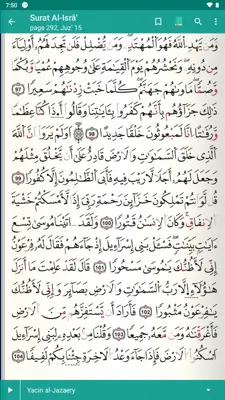 7:50
Surat Al-Isrā'
page 292, Juz' 15
وَمَن يَهْدِ ٱللَّهُ فَهُوَ ٱلْمُهْتَدِ وَمَن يُضْلِلْ فَلَن تَجِدَ لَهُمْ أَوْلِيَآءَ
مِن دُونِهِۦ وَنَحْشُرُهُمْ يَوْمَ ٱلْقِيَٰمَةِ عَلَىٰ وُجُوهِهِمْ عُمْيًا وَبُكْمًا
وَصُمًّا مَّأْوَىٰهُمْ جَهَنَّمُ كُلَّمَا خَبَتْ زِدْنَٰهُمْ سَعِيرًا 97
ذَٰلِكَ جَزَآؤُهُم بِأَنَّهُمْ كَفَرُوا۟ بِـَٔايَٰتِنَا وَقَالُوٓا۟ أَءِذَا كُنَّا عِظَٰمًا
وَرُفَٰتًا أَءِنَّا لَمَبْعُوثُونَ خَلْقًا جَدِيدًا 98 أَوَلَمْ يَرَوْا۟ أَنَّ ٱللَّهَ
ٱلَّذِى خَلَقَ ٱلسَّمَٰوَٰتِ وَٱلْأَرْضَ قَادِرٌ عَلَىٰٓ أَن يَخْلُقَ مِثْلَهُمْ
وَجَعَلَ لَهُمْ أَجَلًا لَّا رَيْبَ فِيهِ فَأَبَى ٱلظَّٰلِمُونَ إِلَّا كُفُورًا 99
قُل لَّوْ أَنتُمْ تَمْلِكُونَ خَزَآئِنَ رَحْمَةِ رَبِّىٓ إِذًا لَّأَمْسَكْتُمْ خَشْيَةَ
ٱلْإِنفَاقِ وَكَانَ ٱلْإِنسَٰنُ قَتُورًا 100 وَلَقَدْ ءَاتَيْنَا مُوسَىٰ تِسْعَ
ءَايَٰتٍۭ بَيِّنَٰتٍ فَسْـَٔلْ بَنِىٓ إِسْرَٰٓءِيلَ إِذْ جَآءَهُمْ فَقَالَ لَهُۥ فِرْعَوْنُ
إِنِّى لَأَظُنُّكَ يَٰمُوسَىٰ مَسْحُورًا 101 قَالَ لَقَدْ عَلِمْتَ مَآ أَنزَلَ
هَٰٓؤُلَآءِ إِلَّا رَبُّ ٱلسَّمَٰوَٰتِ وَٱلْأَرْضِ بَصَآئِرَ وَإِنِّى لَأَظُنُّكَ
يَٰفِرْعَوْنُ مَثْبُورًا 102 فَأَرَادَ أَن يَسْتَفِزَّهُم مِّنَ ٱلْأَرْضِ
فَأَغْرَقْنَٰهُ وَمَن مَّعَهُۥ جَمِيعًا 103 وَقُلْنَا مِنۢ بَعْدِهِۦ لِبَنِىٓ إِسْرَٰٓءِيلَ
ٱسْكُنُوا۟ ٱلْأَرْضَ فَإِذَا جَآءَ وَعْدُ ٱلْـَٔاخِرَةِ جِئْنَا بِكُمْ لَفِيفًا 104
Yacin al-Jazaery